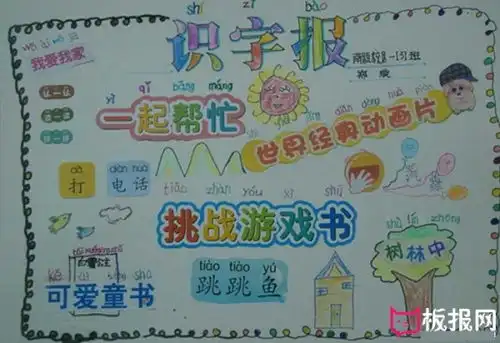 shí zì bào
识字报
wǒ ài wǒ jiā
我爱我家
yì qǐ bāng máng
一起帮忙
世界经典动画片
dǎ
打
diàn huà
电话
tiǎo zhàn yóu xì shū
挑战游戏书
shù lín zhōng
树林中
tiào tiào yú
跳跳鱼
可爱童书
板报网